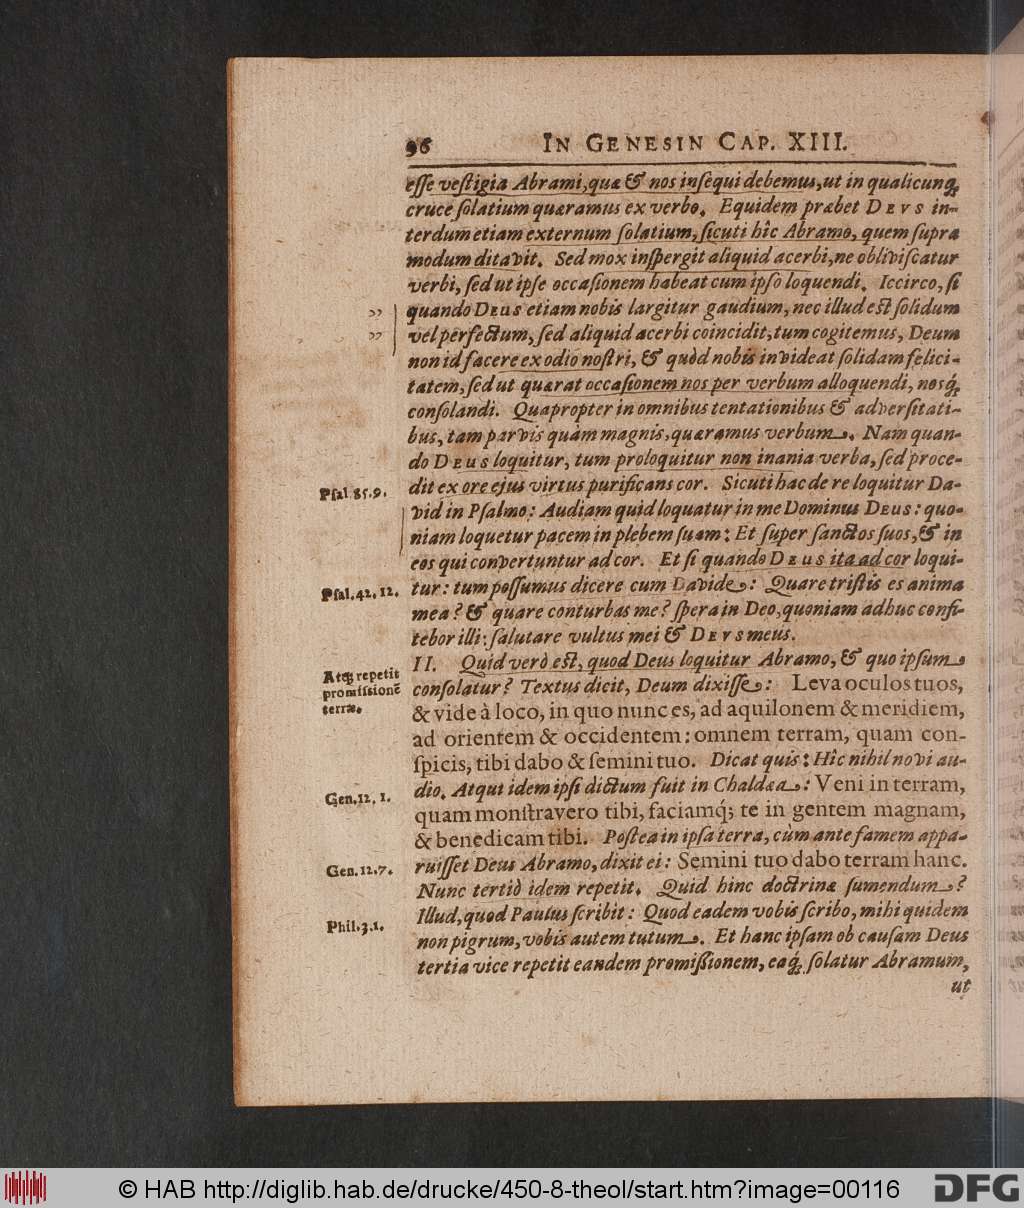 96 IN GENESIN CAP. XIII.
eſſe veſtigia Abrami, quæ & nos inſequi debemus, ut in qualicunq;
cruce ſolatium quæramus ex verbo. Equidem præbet DEVS in-
terdum etiam externum ſolatium, ſicuti hîc Abramo, quem ſupra
modum ditavit. Sed mox inſpergit aliquid acerbi, ne obliviſcatur
verbi, ſed ut ipſe occaſionem habeat cum ipſo loquendi. Iccirco, ſi
„ quando DEUS etiam nobis largitur gaudium, nec illud eſt ſolidum
„ vel perfectum, ſed aliquid acerbi coincidit, tum cogitemus, Deum
non id facere ex odio noſtri, & quòd nobis invideat ſolidam felici-
tatem, ſed ut quærat occaſionem nos per verbum alloquendi, nosq́;
conſolandi. Quapropter in omnibus tentationibus & adverſitati-
bus, tam parvis quàm magnis, quæramus verbum. Nam quan-
do DEUS loquitur, tum proloquitur non inania verba, ſed proce-
Pſal. 85. 9. dit ex ore ejus virtus purificans cor. Sicuti hac de re loquitur Da-
vid in Pſalmo: Audiam quid loquatur in me Dominus DEUS: quo-
niam loquetur pacem in plebem ſuam: Et ſuper ſanctos ſuos, & in
eos qui convertuntur ad cor. Et ſi quando DEUS ita ad cor loqui-
Pſal. 42. 12. tur: tum poſſumus dicere cum Davide: Quare triſtis es anima
mea? & quare conturbas me? ſpera in Deo, quoniam adhuc confi-
tebor illi: ſalutare vultus mei & DEVS meus.
II. Quid verò eſt, quod Deus loquitur Abramo, & quo ipſum
Atq; repetit
promiſſionē
terræ.
conſolatur? Textus dicit, Deum dixiſſe: Leva oculos tuos,
& vide à loco, in quo nunc es, ad aquilonem & meridiem,
ad orientem & occidentem: omnem terram, quam con-
ſpicis, tibi dabo & ſemini tuo. Dicat quis: Hîc nihil novi au-
Gen. 12. 1. dio. Atqui idem ipſi dictum fuit in Chaldæa: Veni in terram,
quam monſtravero tibi, faciamq́; te in gentem magnam,
& benedicam tibi. Poſtea in ipſa terra, cùm ante famem appa-
Gen. 12. 7. ruiſſet Deus Abramo, dixit ei: Semini tuo dabo terram hanc.
Nunc tertiò idem repetit. Quid hinc doctrinæ ſumendum?
Phil. 3. 1. Illud, quod Paulus ſcribit: Quod eadem vobis ſcribo, mihi quidem
non pigrum, vobis autem tutum. Et hanc ipſam ob cauſam Deus
tertia vice repetit eandem promiſſionem, eaq́; ſolatur Abramum,
ut
© HAB http://diglib.hab.de/drucke/450-8-theol/start.htm?image=00116
DFG